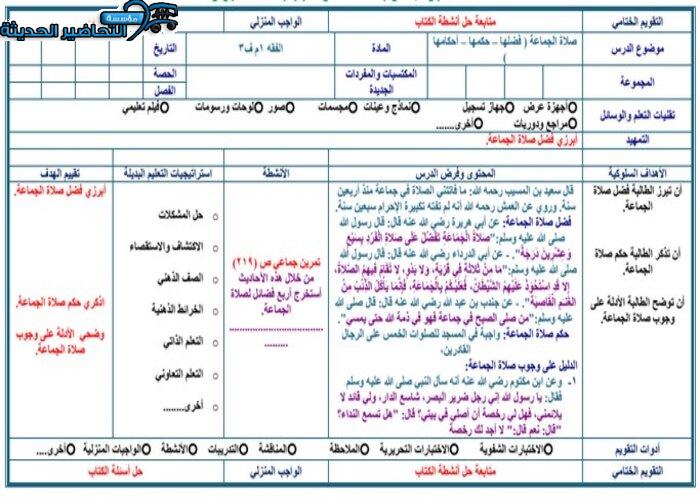 مؤسسة التحاضير الحديثة
التقويم الختامي متابعة حل أنشطة الكتاب الواجب المنزلي
موضوع الدرس صلاة الجماعة ( فضلها – حكمها – أحكامها ) المادة الفقه ١م ف٣ التاريخ
المجموعة المكتسبات والمفردات الجديدة الحصة
الفصل
تقنيات التعلم والوسائل أجهزة عرض جهاز تسجيل نماذج وعينات مجسمات صور لوحات ورسومات فيلم تعليمي
مراجع ودوريات أخرى.......
التمهيد أبرزي فضل صلاة الجماعة.
الأهداف السلوكية المحتوى وفرض الدرس الأنشطة استراتيجيات التعليم البديلة تقييم الهدف
أن تبرز الطالبة فضل صلاة الجماعة.
أن تذكر الطالبة حكم صلاة الجماعة.
أن توضح الطالبة الأدلة على وجوب صلاة الجماعة.
قال سعيد بن المسيب رحمه الله: ما فاتتني الصلاة في جماعة منذ أربعين
سنة. وروي عن العمش رحمه الله أنه لم تفته تكبيرة الإحرام سبعين سنة.
فضل صلاة الجماعة: عن أبي هريرة رضي الله عنه قال: قال رسول الله
صلى الله عليه وسلم: "صلاة الجماعة تفضل على صلاة الفرد بسبع
وعشرين درجة". - عن أبي الدرداء رضي الله عنه قال: قال رسول الله
صلى الله عليه وسلم: "ما من ثلاثة في قرية، ولا بدو، لا تقام فيهم الصلاة،
إلا قد استحوذ عليهم الشيطان، فعليكم بالجماعة، فإنما يأكل الذئب من
الغنم القاصية". - عن جندب بن عبد الله رضي الله عنه قال: قال صلى الله
عليه وسلم: "من صلى الصبح في جماعة فهو في ذمة الله حتى يمسي".
حكم صلاة الجماعة: واجبة في المسجد للصلوات الخمس على الرجال
القادرين.
الدليل على وجوب صلاة الجماعة:
١- وعن ابن مكتوم رضي الله عنه أنه سأل النبي صلى الله عليه وسلم
فقال: يا رسول الله إني رجل ضرير البصر، شاسع الدار، ولي قائد لا
يلائمني، فهل لي رخصة أن أصلي في بيتي؟ قال: "هل تسمع النداء؟
"قال: نعم قال: " لا أجد لك رخصة
تمرين جماعي ص (٢١٩)
من خلال هذه الأحاديث
أستخرج أربع فضائل لصلاة
الجماعة.
حل المشكلات
الاكتشاف والاستقصاء
الصف الذهني
الخرائط الذهنية
التعلم الذاتي
التعلم التعاوني
أخرى........
أبرزي فضل صلاة الجماعة.
اذكري حكم صلاة الجماعة.
وضحي الأدلة على وجوب صلاة الجماعة.
أدوات التقويم الاختبارات الشفوية الاختبارات التحريرية الملاحظة المناقشة التدريبات الأنشطة الواجبات المنزلية أخرى....
التقويم الختامي متابعة حل أنشطة الكتاب الواجب المنزلي حل أسئلة الكتاب